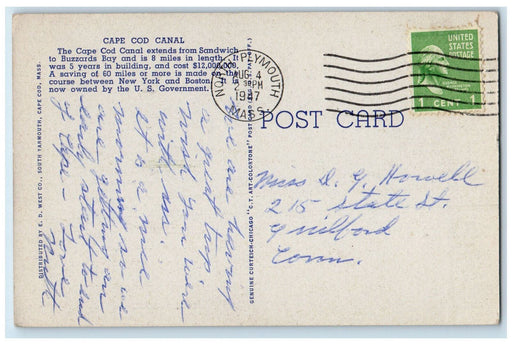 CAPE COD CANAL
The Cape Cod Canal extends from Sandwich
to Buzzards Bay and is 8 miles in length. It
was 5 years in building, and cost $12,000,000.
A saving of 60 miles or more is made on the
course between New York and Boston. It is
now owned by the U. S. Government.
NO. PLYMOUTH
AUG 4
PM
1947
MASS.
UNITED
STATES
POSTAGE
1 CENT 1
POST CARD
Miss D. G. Howell
215 State St.
Guilford
Conn.
We are having
a great trip.
Wish you were
with us.
It is a nice
morning so we
are getting an
early start to end
of Cape – Love
Ruth
DISTRIBUTED BY E. D. WEST CO., SOUTH YARMOUTH, CAPE COD, MASS.
GENUINE CURTEICH-CHICAGO "C.T. ART-COLORTONE" POST CARD